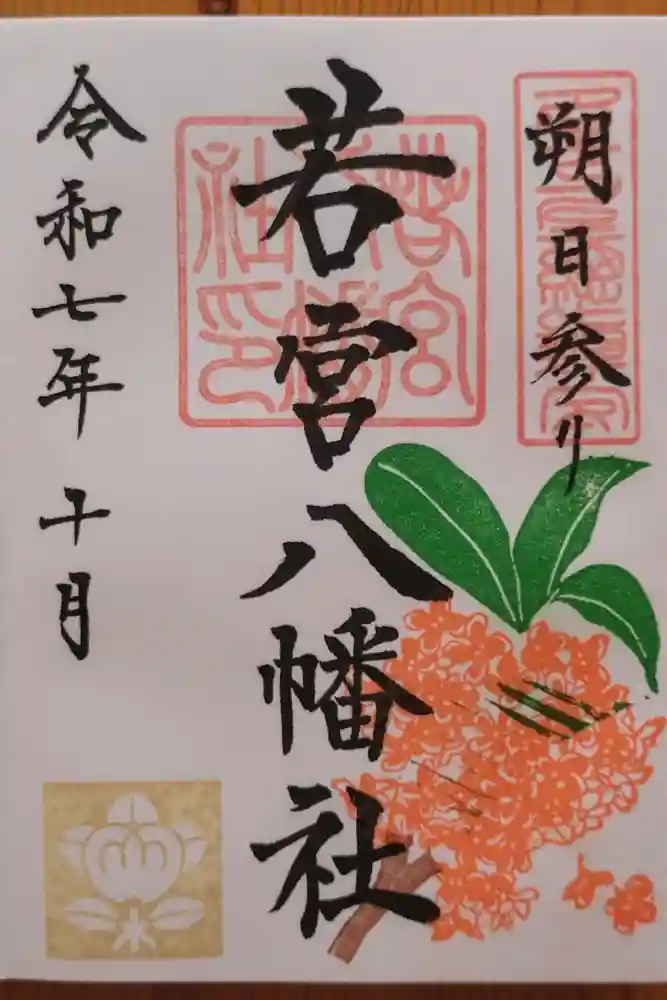 朔日参り
若宮八幡社
若宮八幡社印
令和七年十月